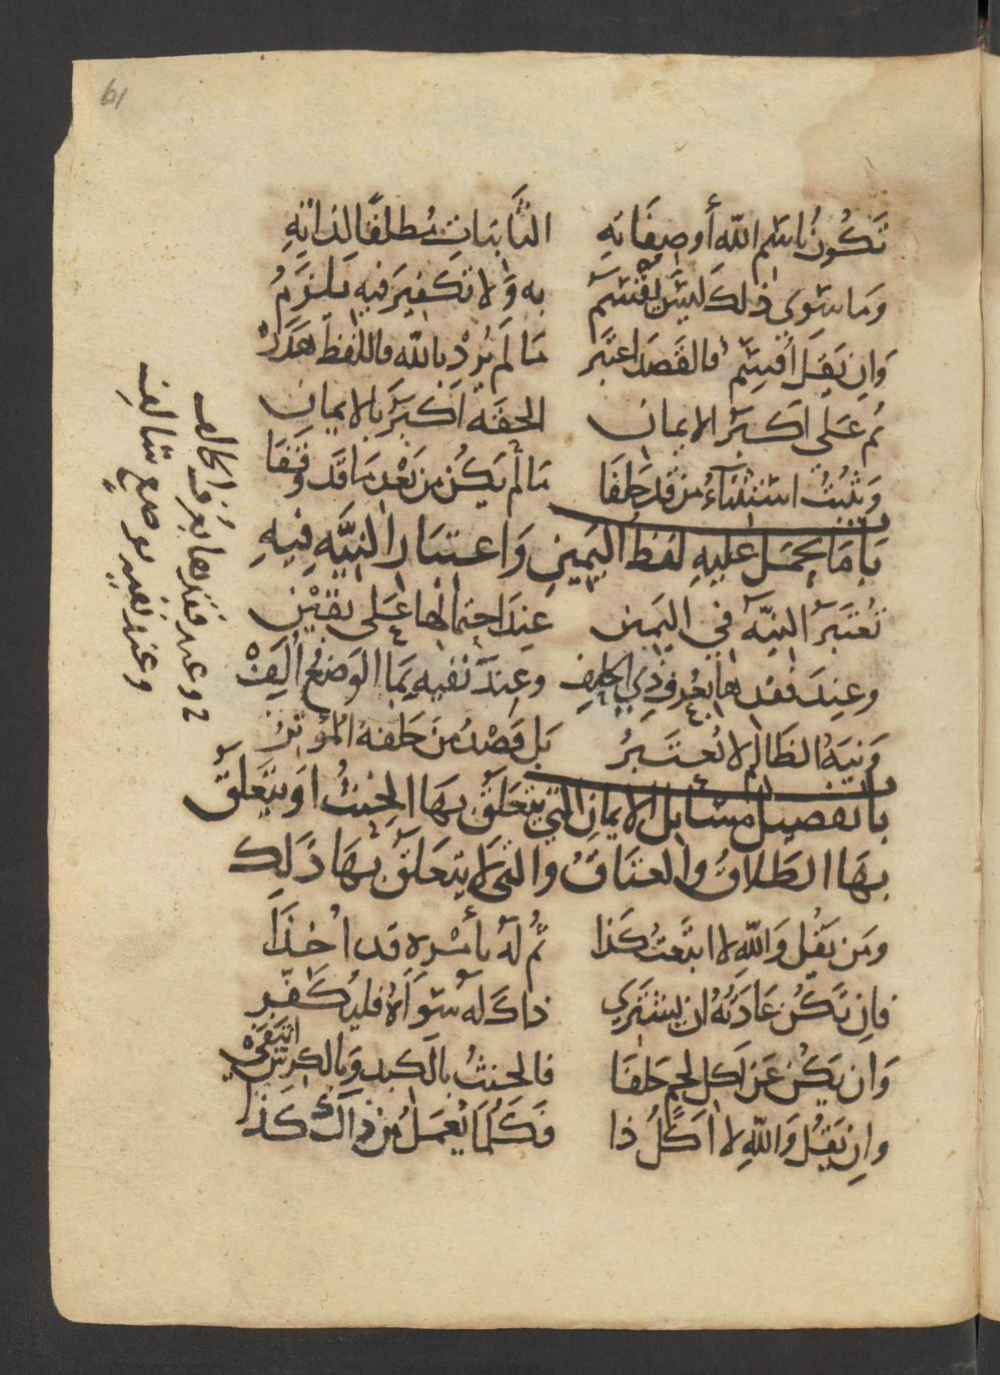 61
تَكُونُ بِاسْمِ اللّٰهِ أَوْ صِفَاتِهِ الثَّابِتَاتِ مُطلقًا لِذَاتِهِ
وَمَا سِوَى ذٰلِكَ لَيْسَ يُقْسَمُ بِهِ وَلَا تَكْفِيرَ فِيهِ يَلْزَمُ
وَاِنْ يَقُلْ أُقْسِمُ فَالقَصْدَ اعْتَبِرْ مَا لَم يُرِدْ بِاللّٰهِ فَاللَّفْظُ هَدَرْ
ثُم عَلَى أَكْبَرِ الايمانِ الحقه أَكْبَر بِالايمانِ
وَيَثْبُتُ اسْتِثْنَاءُ مَن قَد حَلَفَا مَا لَمْ يَكُن مِن بَعْدِ مَا قَد وَقَفَا
بَاب مَا يُحْمَلُ عَلَيهِ لَفظُ اليَمِينِ وَاعتبَار النِيَّهِ فِيهِ
تُعْتَبَرُ النِيَّه فِي اليَمِين عِندَ احتِمَالِهَا عَلَى يَقِيْنِ
وعِندَ فقدها بعُرفِ ذِي الحلفِ وعِندَ نَفيِه بِمَا الوَضعُ أُلِفْ
وَنِيَةُ الظَالِمِ لا تُعتَبَرُ بَل قَصْدُ مَن حَلفه المُؤَثِّرُ
باب تفصيل مسَائل الايمان التي يتعَلقُ بهَا الحِنثُ او يتعَلقُ
بهَا الطَلاقُ والعتَاقُ والتي لا يتعَلقُ بهَا ذَلك
ومَن يَقُل وَاللّٰهِ لا ابتَعتُ كَذا ثُم لَهُ بِأَمْرِه قد اُخِذَا
فاِن تَكُن عَادَتُهُ ان يشتَري ذاكَ لَه سوَاهُ فليُكَفِّر
وَان يَكُن عَن اَكلِ لحمٍ حَلفَا فالحنثُ بالكَبدِ وَبالكرشِ انتفى
وانِ يَقُل وَاللّٰهِ لا اكُلُ ذا فَكُلمَا يُعمَلُ مِن ذاكَ كَذَا
وعند فقدها بعُرف الحالف
وعند نفيه بوضعٍ سَالفِ